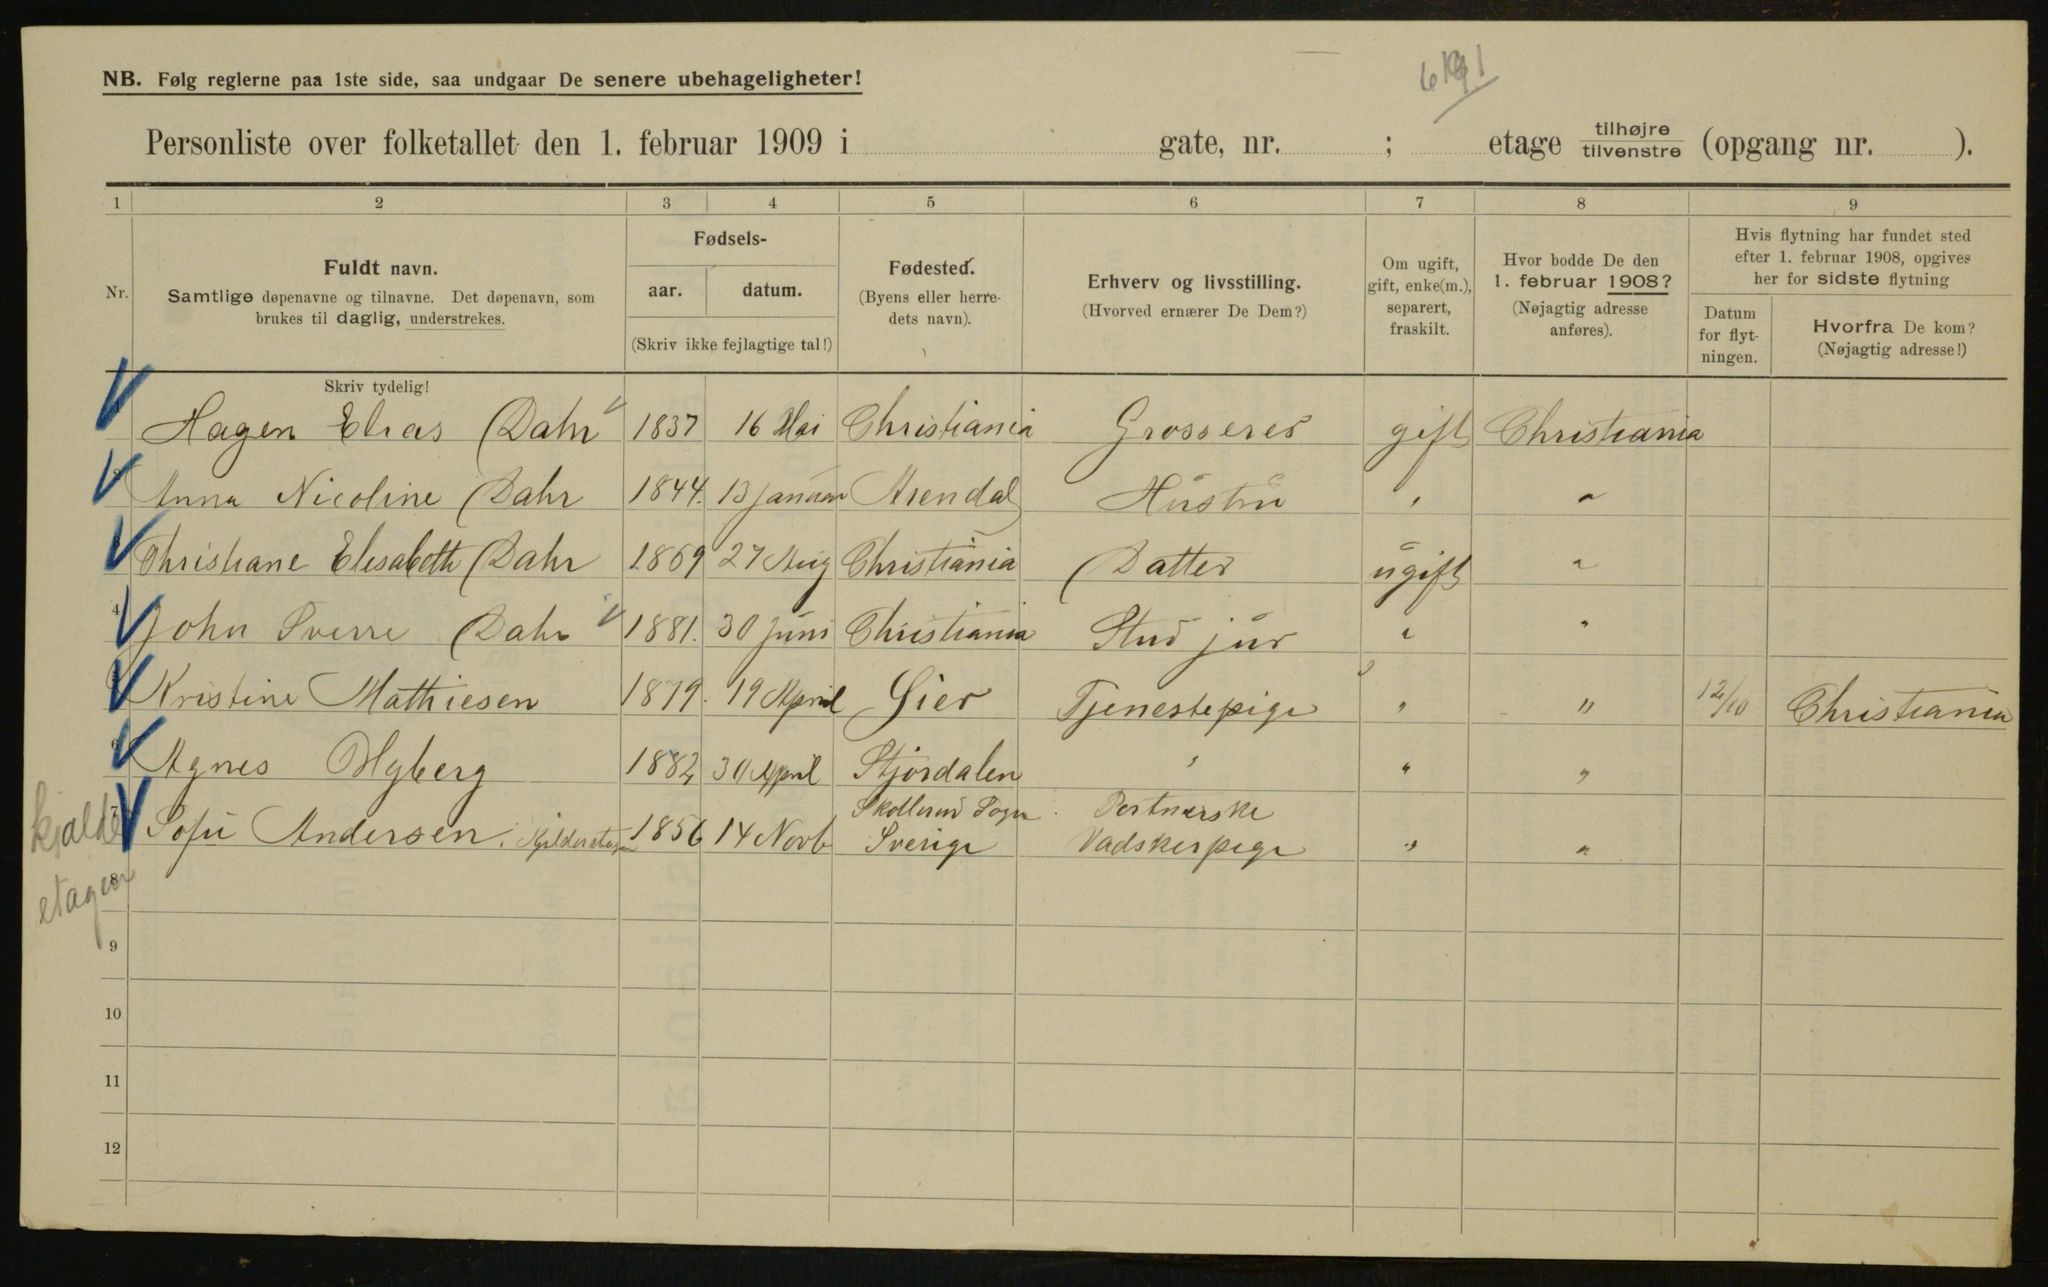 NB. Følg reglerne paa 1ste side, saa undgaar De senere ubehageligheter!
Personliste over folketallet den 1. februar 1909 i gate, nr. ; etage tilhøjre tilvenstre (opgang nr. ).
1 2 3 4 5 6 7 8 9
Nr.
Fuldt navn.
Samtlige døpenavne og tilnavne. Det døpenavn, som
brukes til daglig, understrekes.
Fødsels-
aar. datum.
(Skriv ikke fejlagtige tal!)
Fødested.
(Byens eller herre-
dets navn).
Erhverv og livsstilling.
(Hvorved ernærer De Dem?)
Om ugift,
gift, enke(m.),
separert,
fraskilt.
Hvor bodde De den
1. februar 1908?
(Nøjagtig adresse
anføres).
Hvis flytning har fundet sted
efter 1. februar 1908, opgives
her for sidste flytning
Datum
for flyt-
ningen.
Hvorfra De kom?
(Nøjagtig adresse!)
Skriv tydelig!
Hagen Elias Dahr 1837 16 Mai Christiania Grosserer gift Christiania
Anna Nicoline Dahr 1844. 13 januar Arendal Hustru " "
Christiane Elisabeth Dahr 1869 27 Aug Christiania Datter ugift "
4 John Sverre Dahr 1881. 30 Juni Christiania Stud jur " "
Kristine Mathiesen 1879. 19 April Lier Tjenestepige " " 12/10 Christiania
6 Agnes Myberg 1882 30 April Stjørdalen " " "
7 Sofie Andersen. 1856 14 Novb Sverige Vadskerpige " "
kjalder
etagen
8
9
10
11
12